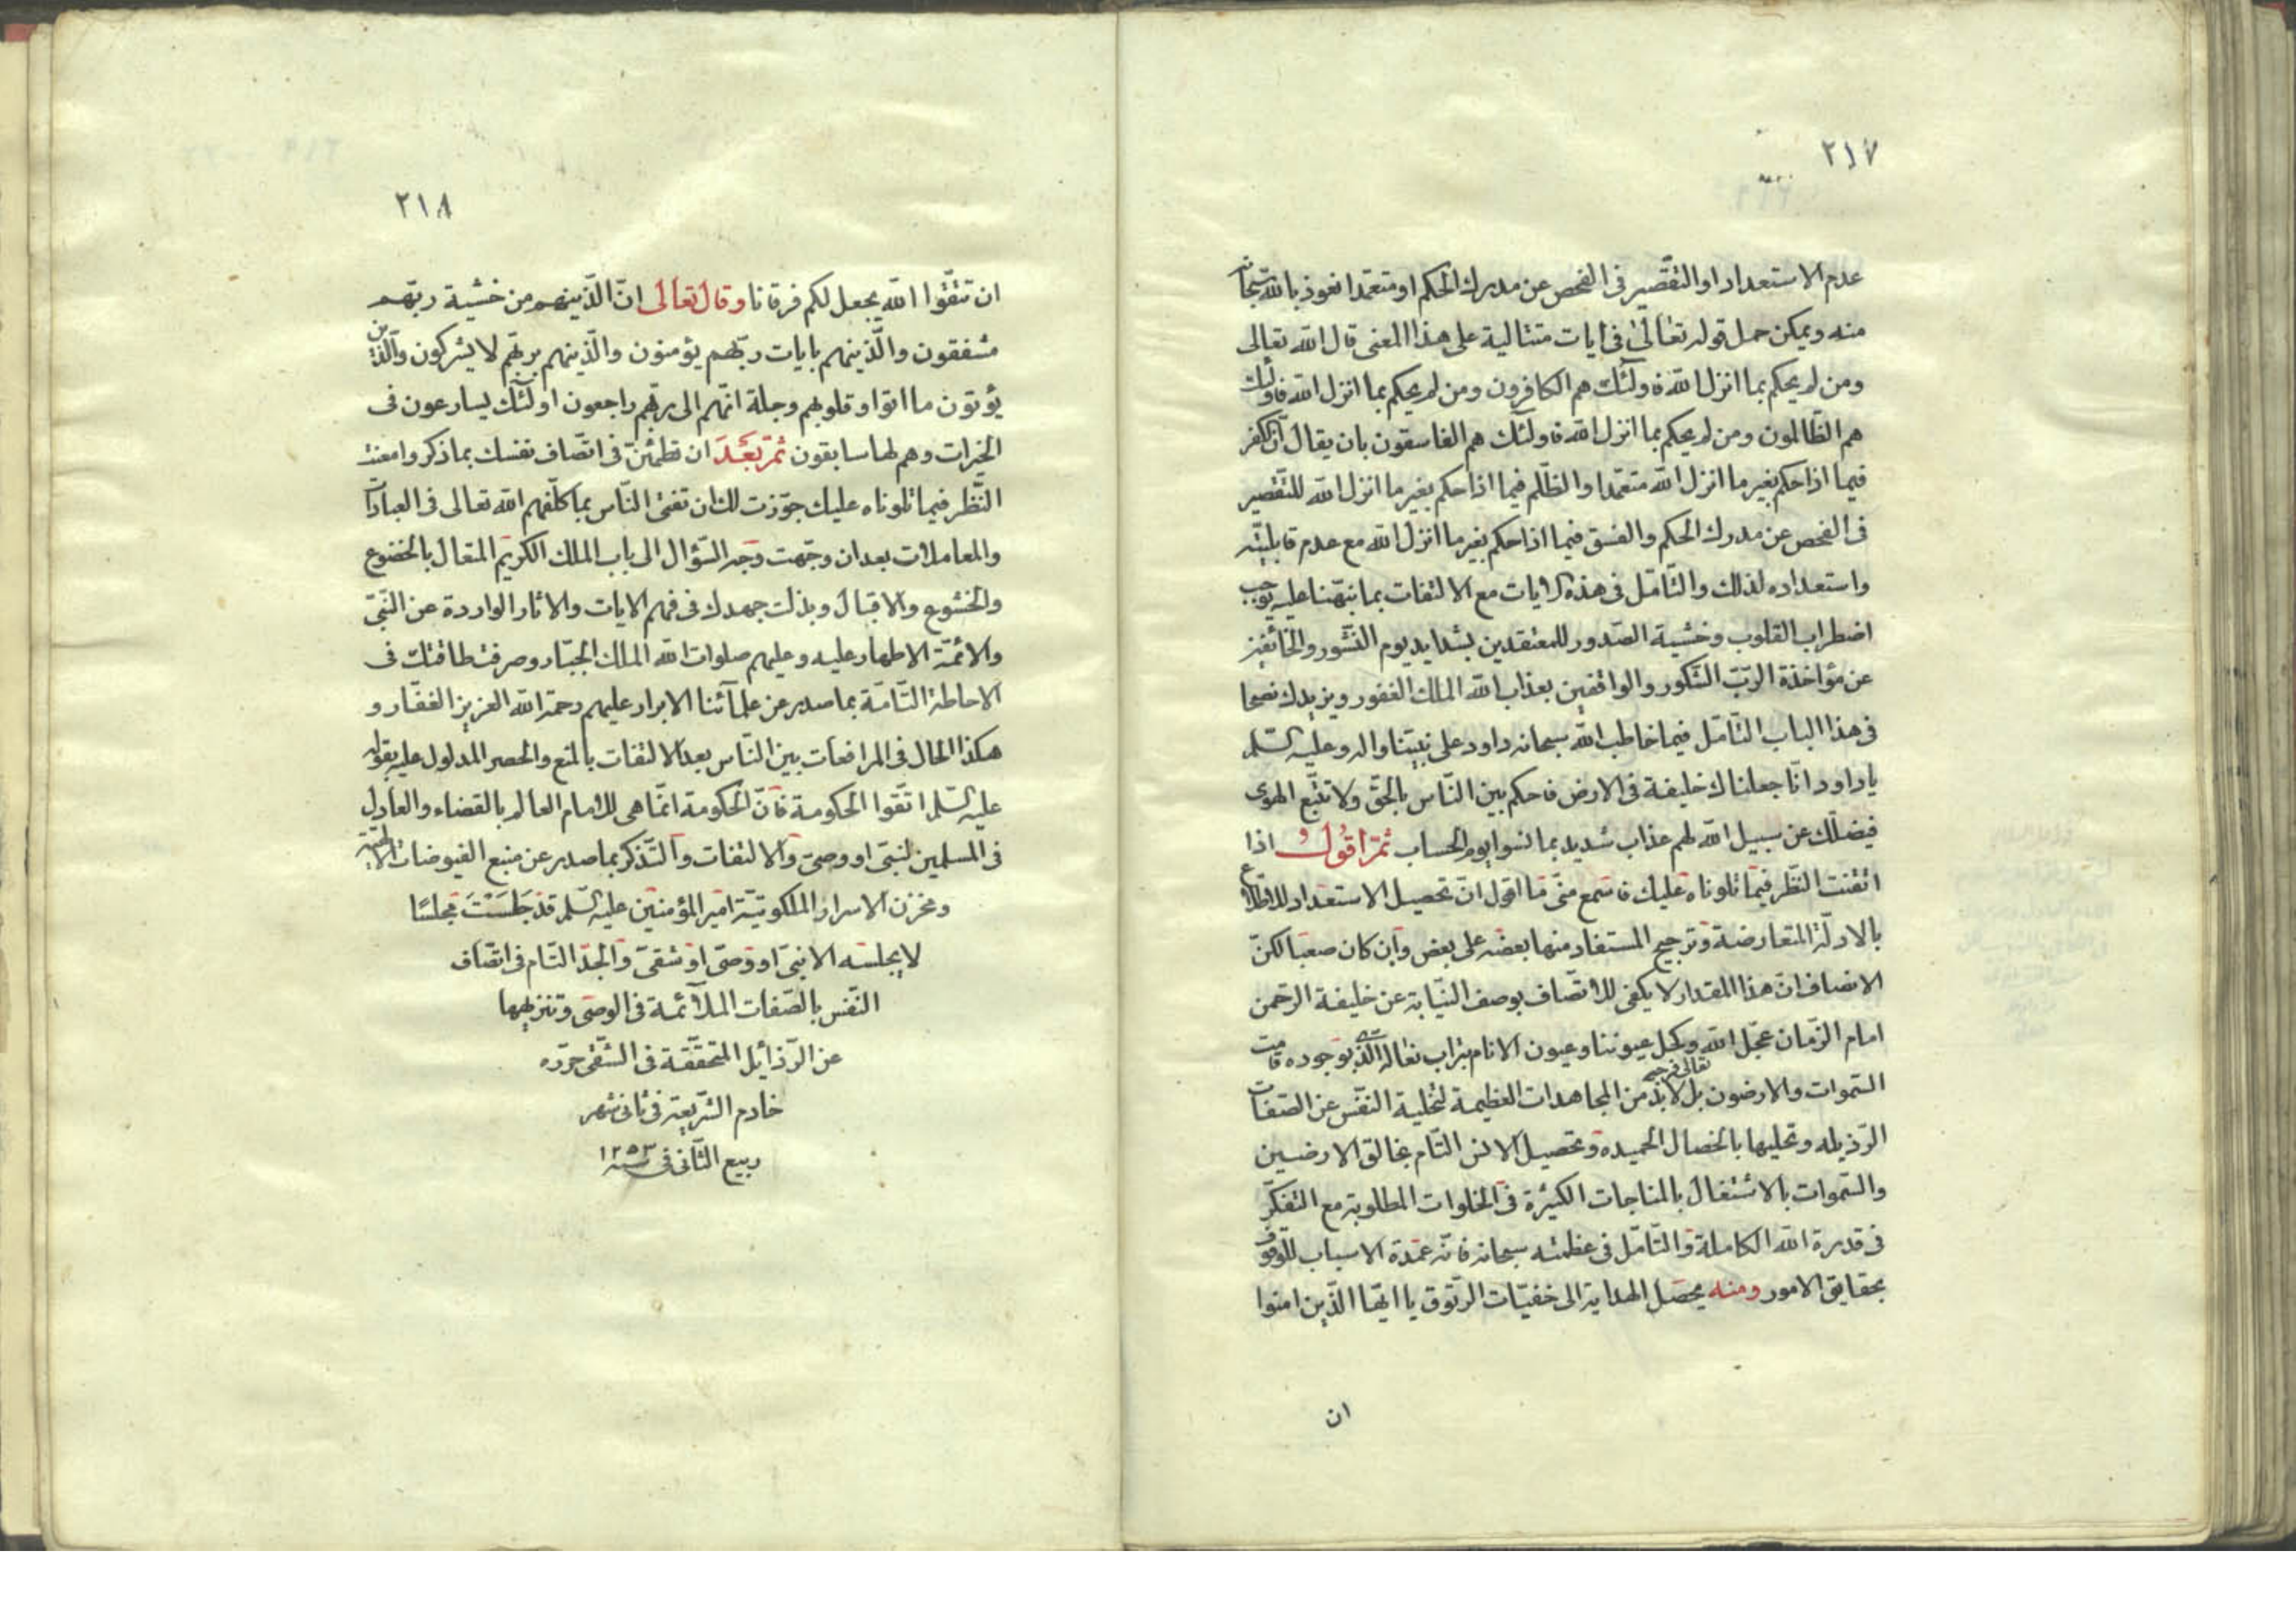 ٢١٧
عدم الاستعداد او التقصير فى الفحص عن مدرك الحكم او متعمدا نعوذ بالله سبحانه
منه ويمكن حمل قوله تعالى فى ايات متتالية على هذا المعنى قال الله تعالى
ومن لم يحكم بما انزل الله فاولئك هم الكافرون ومن لم يحكم بما انزل الله فاولئك
هم الظالمون ومن لم يحكم بما انزل الله فاولئك هم الفاسقون بان يقال ان الكفر
فيما اذا حكم بغير ما انزل الله متعمدا والظلم فيما اذا حكم بغير ما انزل الله للتقصير
فى الفحص عن مدرك الحكم والفسق فيما اذا حكم بغير ما انزل الله مع عدم قابليته
واستعداده لذلك والتامل فى هذه الايات مع الالتفات بما نبهنا عليه يوجب
اضطراب القلوب وخشية الصدور للمعتقدين بشدايد يوم النشور والخائفين
عن مؤاخذة الرب الشكور والواقفين بعذاب الله الملك الغفور ويزيدك نصحا
فى هذا الباب التامل فيما خاطب الله سبحانه داود على نبينا واله وعليه السلم
يا داود انا جعلناك خليفة فى الارض فاحكم بين الناس بالحق ولا تتبع الهوى
فيضلك عن سبيل الله لهم عذاب شديد بما نسوا يوم الحساب ثم اقول اذا
اتقنت النظر فيما تلوناه عليك فاسمع منى ما اقول ان تحصيل الاستعداد للاطلاع
بالادلة المتعارضة وترجيح المستفاد منها بعضه على بعض وان كان صعبا لكن
الانصاف ان هذا المقدار لا يكفى للاتصاف بوصف النيابة عن خليفة الرحمن
امام الزمان عجل الله تعالى فرجه وكحل عيوننا وعيون الانام بتراب نعاله الذى بوجوده قامت
السموات والارضون بل لابد من المجاهدات العظيمة لتخلية النفس عن الصفات
الرذيله وتحليها بالخصال الحميده وتحصيل الانس التام بخالق الارضين
والسموات بالاشتغال بالمناجات الكثيرة فى الخلوات المطلوبة مع التفكر
فى قدرة الله الكاملة والتامل فى عظمته سبحانه فانه عمدة الاسباب للوقوف
بحقايق الامور ومنه يحصل الهداية الى خفيات الرتوق يا ايها الذين امنوا
ان
٢١٨
ان تتقوا الله يجعل لكم فرقانا وقال تعالى ان الذينهم من خشية ربهم
مشفقون والذينهم بايات ربهم يؤمنون والذينهم بربهم لا يشركون والذين
يؤتون ما اتوا وقلوبهم وجلة انهم الى ربهم راجعون اولئك يسارعون فى
الخيرات وهم لها سابقون ثم بعد ان تطمئن فى اتصاف نفسك بما ذكر وامعنت
النظر فيما تلوناه عليك جوزت لك ان تفتى الناس بما كلفهم الله تعالى فى العبادات
والمعاملات بعد ان وجهت وجه السؤال الى باب الملك الكريم المتعال بالخضوع
والخشوع والاقبال وبذلت جهدك فى فهم الايات والاثار الواردة عن النبى
والائمة الاطهار عليه وعليهم صلوات الله الملك الجبار وصرفت طاقتك فى
الاحاطة التامة بما صدر عن علمآئنا الابرار عليهم رحمة الله العزيز الغفار و
هكذا الحال فى المرافعات بين الناس بعد الالتفات بالمنع والحصر المدلول عليه بقوله
عليه السلم اتقوا الحكومة فان الحكومة انما هى للامام العالم بالقضاء والعادل
فى المسلمين لنبى او وصى والالتفات والتذكر بما صدر عن منبع الفيوضات الالهية
ومخزن الاسرار الملكوتية امير المؤمنين عليه السلم قد جلست مجلسا
لا يجلسه الا نبى او وصى او شقى والجد التام فى اتصاف
النفس بالصفات الملائمة فى الوصى وتنزيهها
عن الرذائل المتحققة فى الشقى حرره
خادم الشريعة فى ثانى شهر
ربيع الثانى فى سنه ١٢٥٣